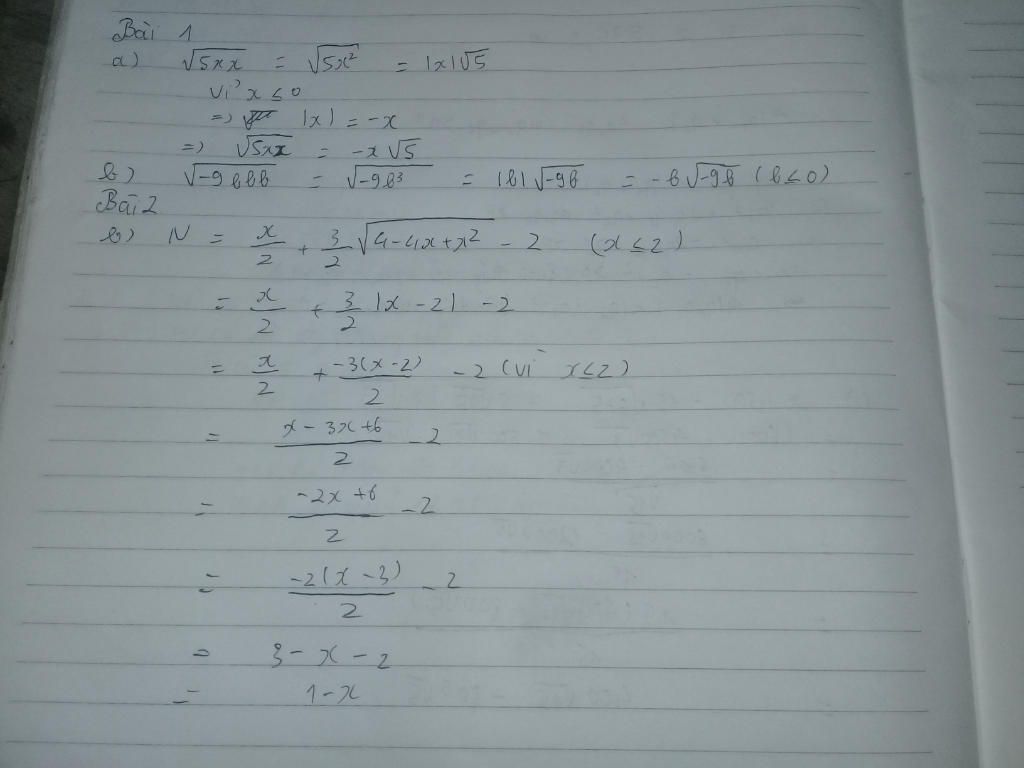 Bài 1
a) √5xx = √5x² = |x|√5
Vì x ≤ 0
=> |x| = -x
=> √5xx = -x√5
b) √-9bbb = √-9b³ = |b|√-9b = -b√-9b (b ≤ 0)
Bài 2
b) N = x/2 + 3/2 √4-4x+x² - 2 (x ≤ 2)
= x/2 + 3/2 |x - 2| - 2
= x/2 + -3(x-2)/2 - 2 (vì x ≤ 2)
= x - 3x + 6/2 - 2
= -2x + 6/2 - 2
= -2(x - 3)/2 - 2
= 3 - x - 2
= 1 - x